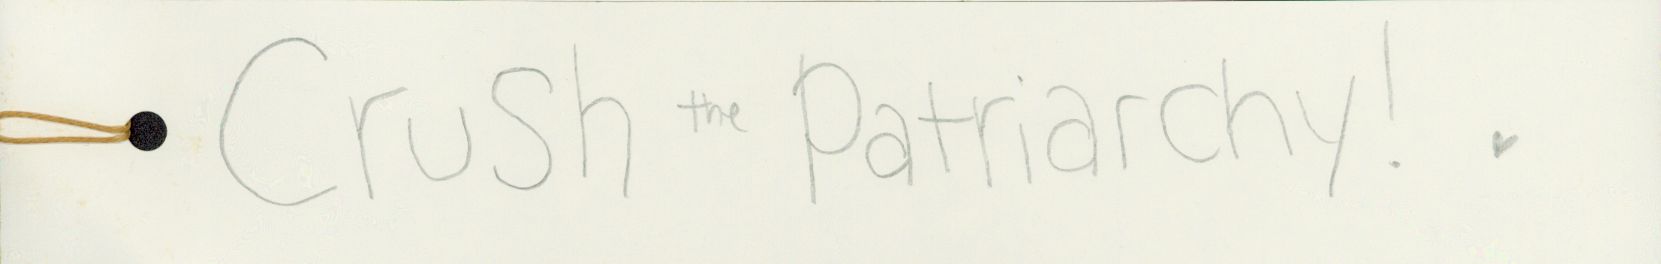 Crush the Patriarchy!